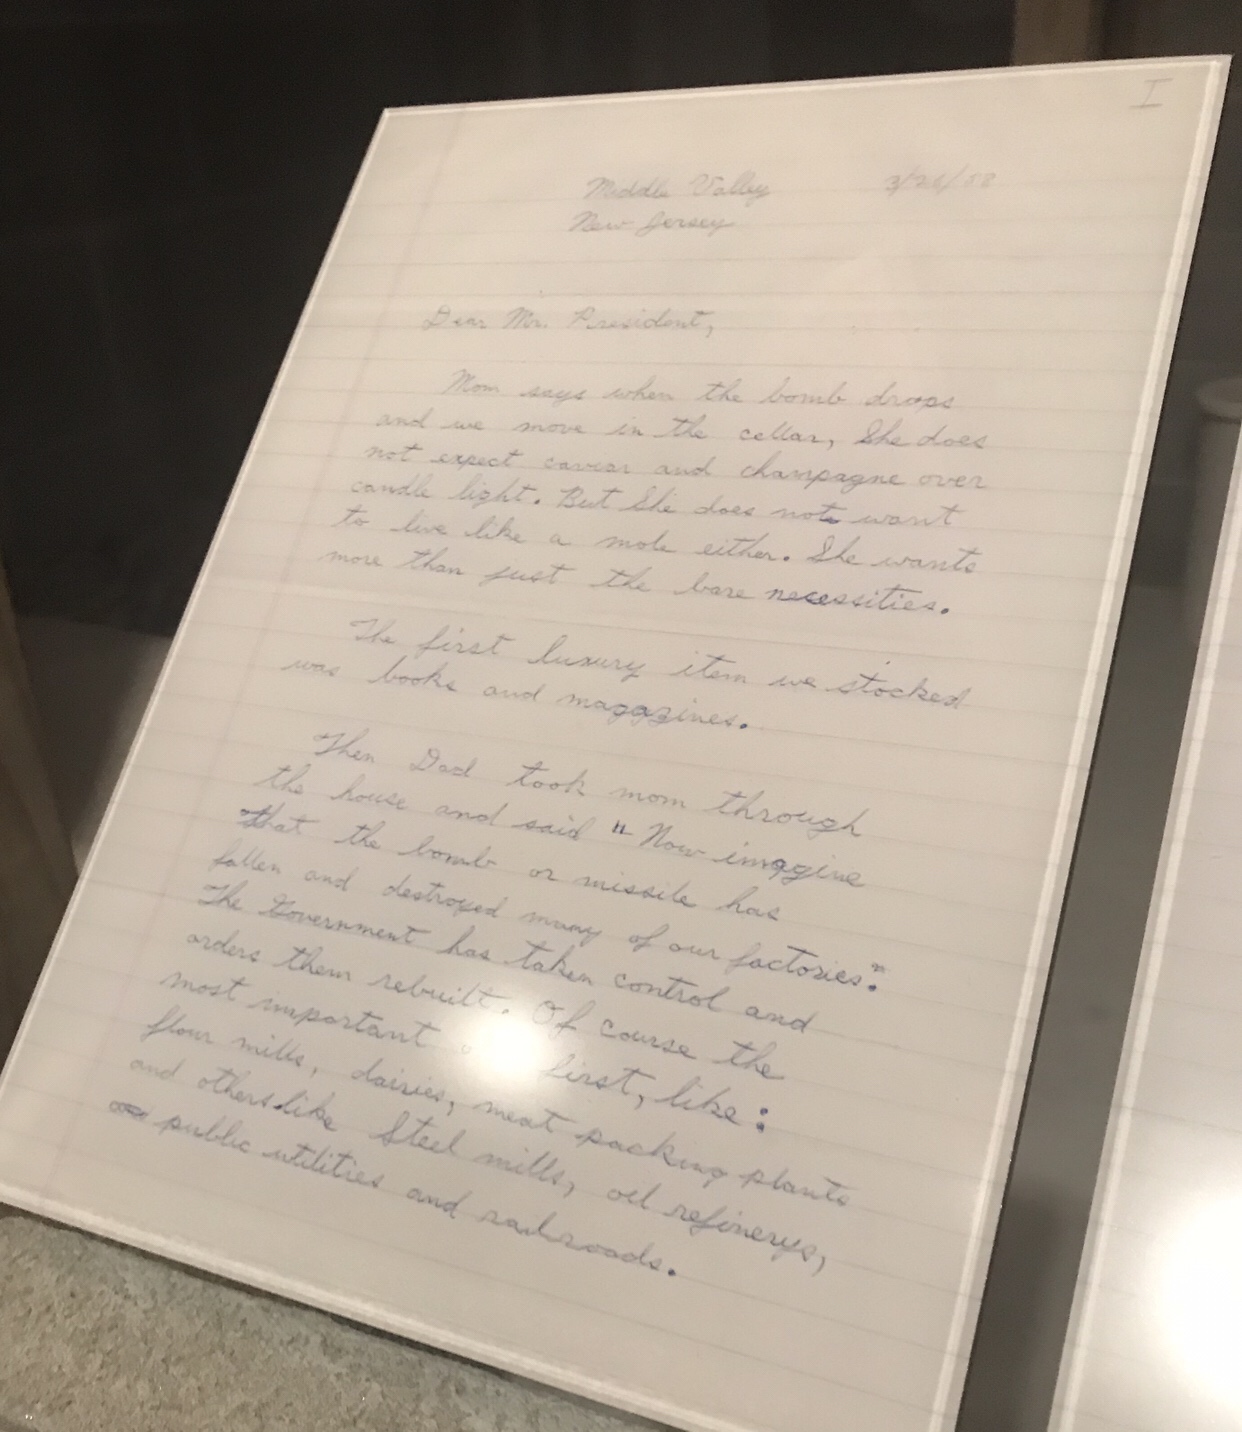 I
Middle Valley
New Jersey
Dear Mr. President,
Mom says when the bomb drops
and we move in the cellar, She does
not expect caviar and champagne over
candle light. But She does not want
to live like a mole either. She wants
more than just the bare necessities.
The first luxury item we stocked
was books and magazines.
Then Dad took mom through
the house and said "Now imagine
that the bomb or missile has
fallen and destroyed many of our factories."
The Government has taken control and
orders them rebuilt. Of course the
most important first, like:
flour mills, dairies, meat packing plants
and others like Steel mills, oil refinerys,
public utilities and railroads.